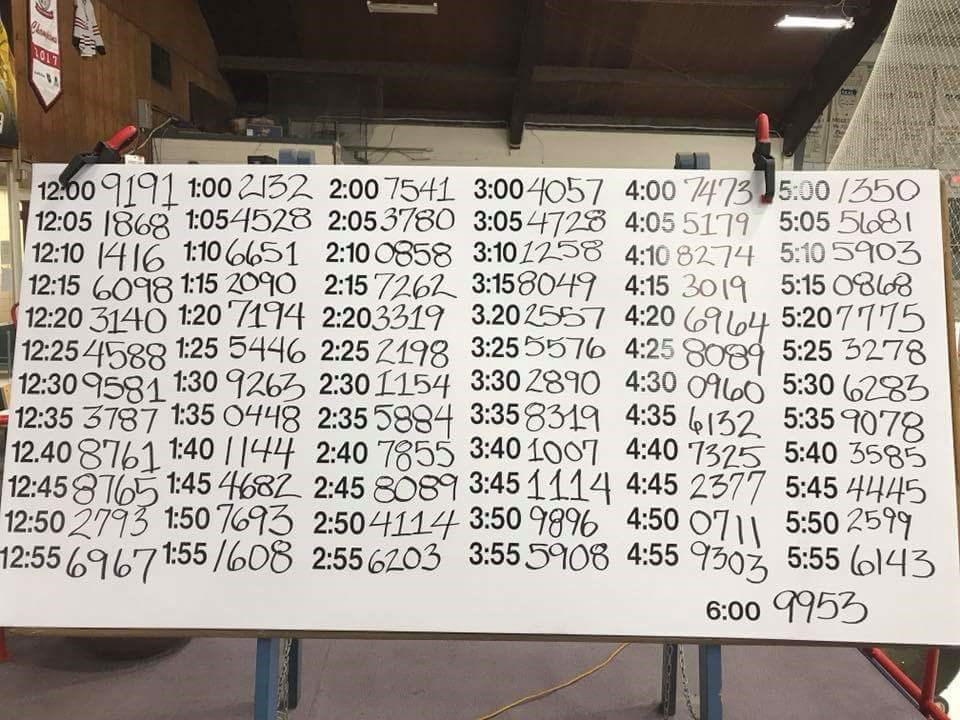 Champions
2017
12:00 9191 1:00 2132 2:00 7541 3:00 4057 4:00 7473 5:00 1350
12:05 1868 1:05 4528 2:05 3780 3:05 4728 4:05 5179 5:05 5681
12:10 1416 1:10 6651 2:10 0858 3:10 1258 4:10 8274 5:10 5903
12:15 6098 1:15 2090 2:15 7262 3:15 8049 4:15 3019 5:15 0868
12:20 3140 1:20 7194 2:20 3319 3.20 2557 4:20 6964 5:20 7775
12:25 4588 1:25 5446 2:25 2198 3:25 5576 4:25 8089 5:25 3278
12:30 9581 1:30 9263 2:30 1154 3:30 2890 4:30 0960 5:30 6283
12:35 3787 1:35 0448 2:35 5884 3:35 8319 4:35 6132 5:35 9078
12.40 8761 1:40 1144 2:40 7855 3:40 1007 4:40 7325 5:40 3585
12:45 8765 1:45 4682 2:45 8089 3:45 1114 4:45 2377 5:45 4445
12:50 2793 1:50 7693 2:50 4114 3:50 9896 4:50 0711 5:50 2599
12:55 6967 1:55 1608 2:55 6203 3:55 5908 4:55 9303 5:55 6143
6:00 9953